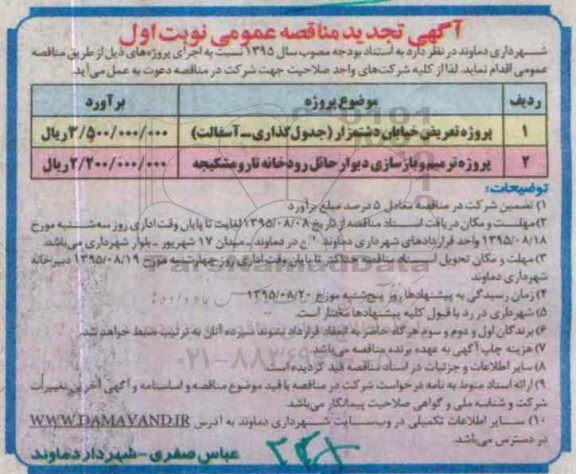 آگهی تجدید مناقصه عمومی نوبت اول
شهرداری دماوند در نظر دارد به استناد بودجه مصوب سال ۱۳۹۵ نسبت به اجرای پروژه‌های ذیل از طریق مناقصه
عمومی اقدام نماید. لذا از کلیه شرکت‌های واجد صلاحیت جهت شرکت در مناقصه دعوت به عمل می‌آید.
ردیف موضوع پروژه برآورد
۱ پروژه تعریض خیابان دشتمزار (جدول گذاری - آسفالت) ۳/۵۰۰/۰۰۰/۰۰۰ ریال
۲ پروژه ترمیم و بازسازی دیوار حائل رودخانه تارو مشکیجه ۲/۲۰۰/۰۰۰/۰۰۰ ریال
توضیحات:
۱) تضمین شرکت در مناقصه معادل ۵ درصد مبلغ برآورد
۲) مهلت و مکان دریافت اسناد مناقصه از تاریخ ۱۳۹۵/۰۸/۰۸ لغایت تا پایان وقت اداری روز سه‌شنبه مورخ
۱۳۹۵/۰۸/۱۸ واحد قراردادهای شهرداری دماوند در دماوند - میدان ۱۷ شهریور - بلوار شهرداری می‌باشد.
۳) مهلت و مکان تحویل اسناد مناقصه حداکثر تا پایان وقت اداری روز چهارشنبه مورخ ۱۳۹۵/۰۸/۱۹ دبیرخانه
شهرداری دماوند
۴) زمان رسیدگی به پیشنهادها روز پنج‌شنبه مورخ ۱۳۹۵/۰۸/۲۰
۵) شهرداری در رد یا قبول کلیه پیشنهادها مختار است.
۶) برندگان اول و دوم و سوم هرگاه حاضر به انعقاد قرارداد نشوند سپرده آنان به ترتیب ضبط خواهد شد.
۷) هزینه چاپ آگهی به عهده برنده مناقصه می‌باشد.
۸) سایر اطلاعات و جزئیات در اسناد مناقصه قید گردیده است.
۹) ارائه اسناد منوط به نامه درخواست شرکت در مناقصه با قید موضوع مناقصه و اساسنامه و آگهی آخرین تغییرات
شرکت و شناسه ملی و گواهی صلاحیت پیمانکار می‌باشد.
۱۰) سایر اطلاعات تکمیلی در وب‌سایت شهرداری دماوند به آدرس WWW.DAMAVAND.IR
در دسترس می‌باشد.
عباس صفری - شهردار دماوند